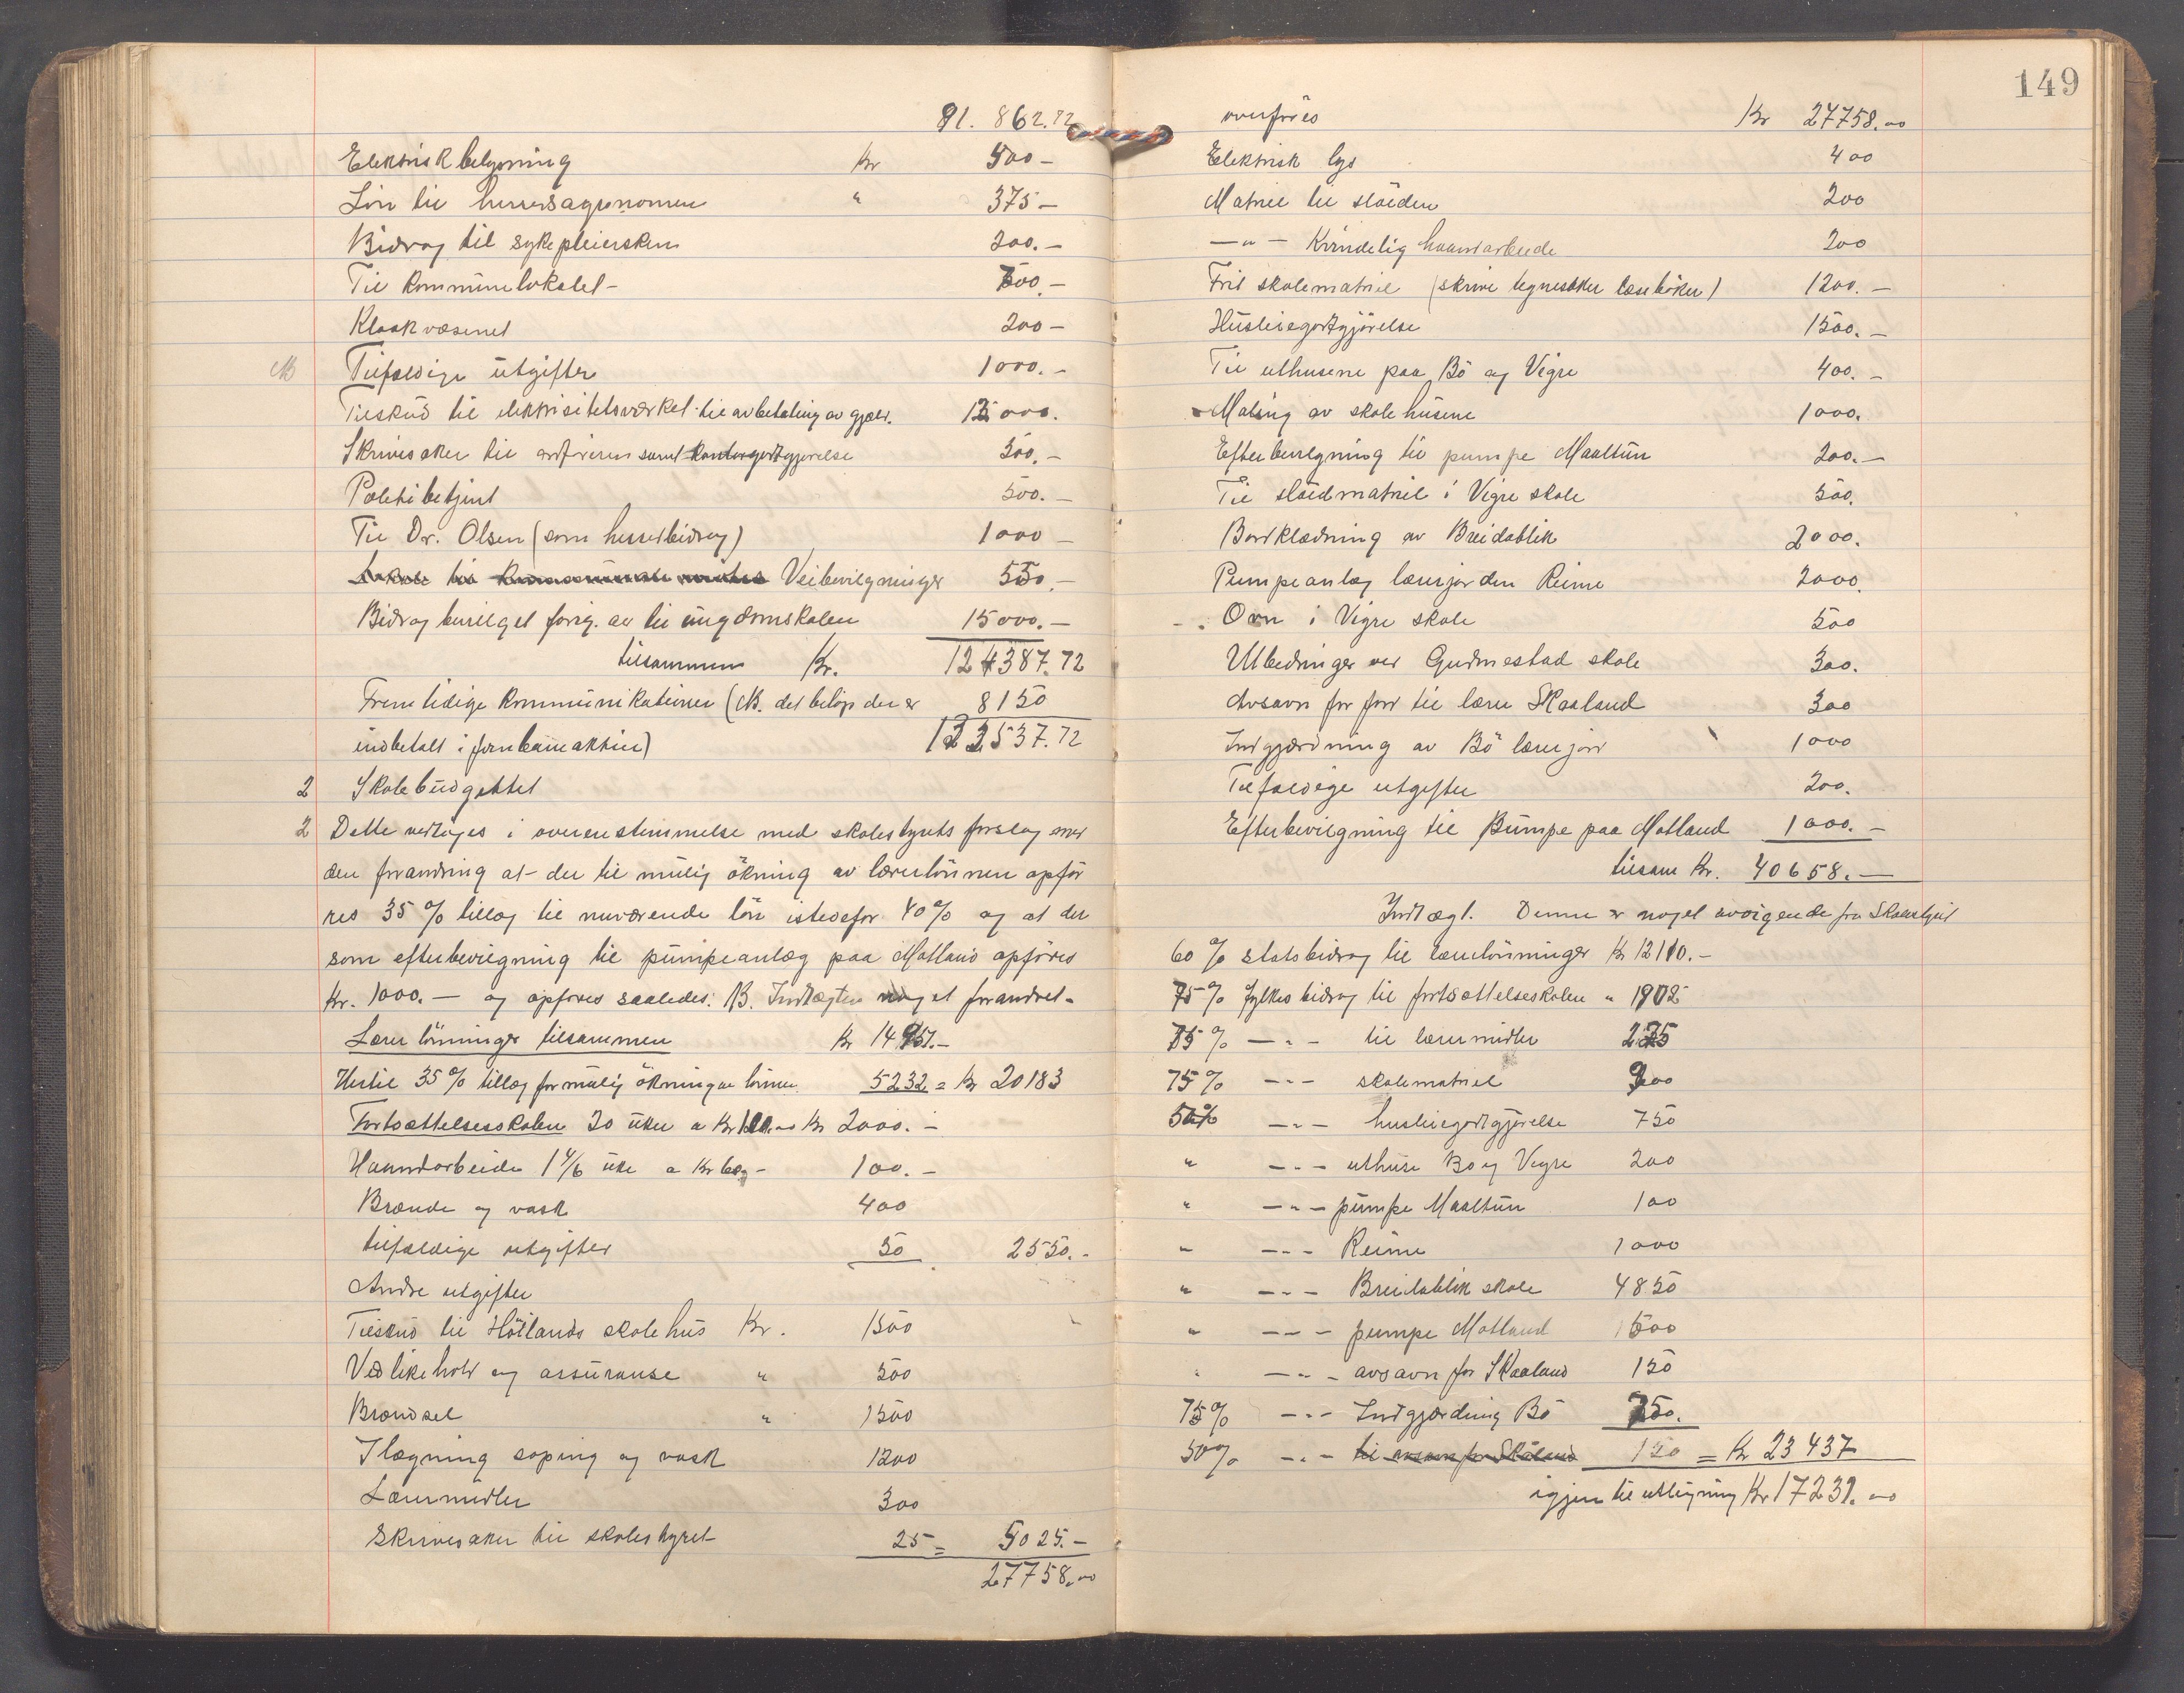 91. 862.72
Elektrisk belysning Kr 500 –
Løn til herredsagronomen " 375 –
Bidrag til sykepleiersken 200. –
Til kommunelokalet – 700. –
Kloakvæsenet 200 –
NB Tilfældige utgifter 1000. –
Tilskud til elektrisitetsværket til avbetaling av gjæld. 13000.
Skrivesaker til ordføreren samt kontorgodtgjørelse 300. –
Politibetjent 500. –
Til Dr. Olsen (som herredsbidrag) 1000 –
Veibevilgninger 550. –
Bidrag bevilget forrig. aar til ungdomskolen 15000. –
tilsammen Kr. 124387.72
Fremtidige kommunikationer (NB. det beløp der er 8150
indbetalt i jernbaneaktier) 132537.72
2 Skolebudgettet
2 Dette vedtages i overenstemmelse med skolestyrets forslag med
den forandring at der til mulig økning av lærerlønnen opfør
res 35 % tillæg til nuværende løn istedefor 40 % og at der
som efterbevilgning til pumpeanlæg paa Motland opføres
Kr. 1000. – og opføres saaledes: NB. Indtægten noget forandret –
Lærerlønninger tilsammen Kr 14951. –
Hertil 35 % tillæg for mulig økning av lønnen 5232 = Kr 20183
Fortsættelsesskolen 20 uker a Kr 100.00 Kr 2000. –
Haandarbeide 1 4/6 uke a Kr 60 – 100. –
Brænde og vask 400
tilfældige utgifter 50 2550. –
Andre utgifter
Tilskud til Høilands skolehus Kr. 1500
Vedlikehold og assuranse " 500
Brændsel " 1500
Ilægning soping og vask 1200
Læremidler 300
Skrivesaker til skolestyret 25 = 5025. –
27758.00
149
overføres Kr 27758.00
Elektrisk lys 400
Matriel til sløiden 200
– " – Kvindelig haandarbeide 200
Frit skolematriel (skrive tegnesaker læsebøker) 1200. –
Husleiegodtgjørelse 1500. –
Til uthusene paa Bø og Vigre 400. –
Maling av skolehusene 1000.
Efterbevilgning til pumpe Maaltun 200. –
Til sløidmatriel i Vigre skole 500.
Bordklædning av Breidablik 2000.
Pumpeanlæg lærerjorden Reime 2000.
Ovn i Vigre skole 500
Utbedringer ved Gudmestad skole 300.
Avsavn for jord til lærer Skaaland 300
Indgjærdning av Bø lærerjord 1000
Tilfældige utgifter 200.
Efterbevilgning til Pumpe paa Motland 1000. –
tilsam Kr. 40658. –
Indtægt. Denne er noget avvigende fra Skolestyret
60 % statsbidrag til lærerlønninger Kr 12110. –
75 % fylkesbidrag til fortsættelseskolen " 1902
75 % – " – til læremidler 225
75 % – " – skolematriel 900
50 % – " – husleiegodtgjørelse 750
" – " – uthuse Bø og Vigre 200
" – " – pumpe Maaltun 100
" – " – Reime 1000
" – " – Breidablik skole 4850
" – " – pumpe Motland 500
" – " – avsavn for Skaaland 150
75 % – " – Indgjærdning Bø 750.
50 % – " – til avsavn for Skåland 150 = Kr 23437
igjen til utligning Kr 17231.00